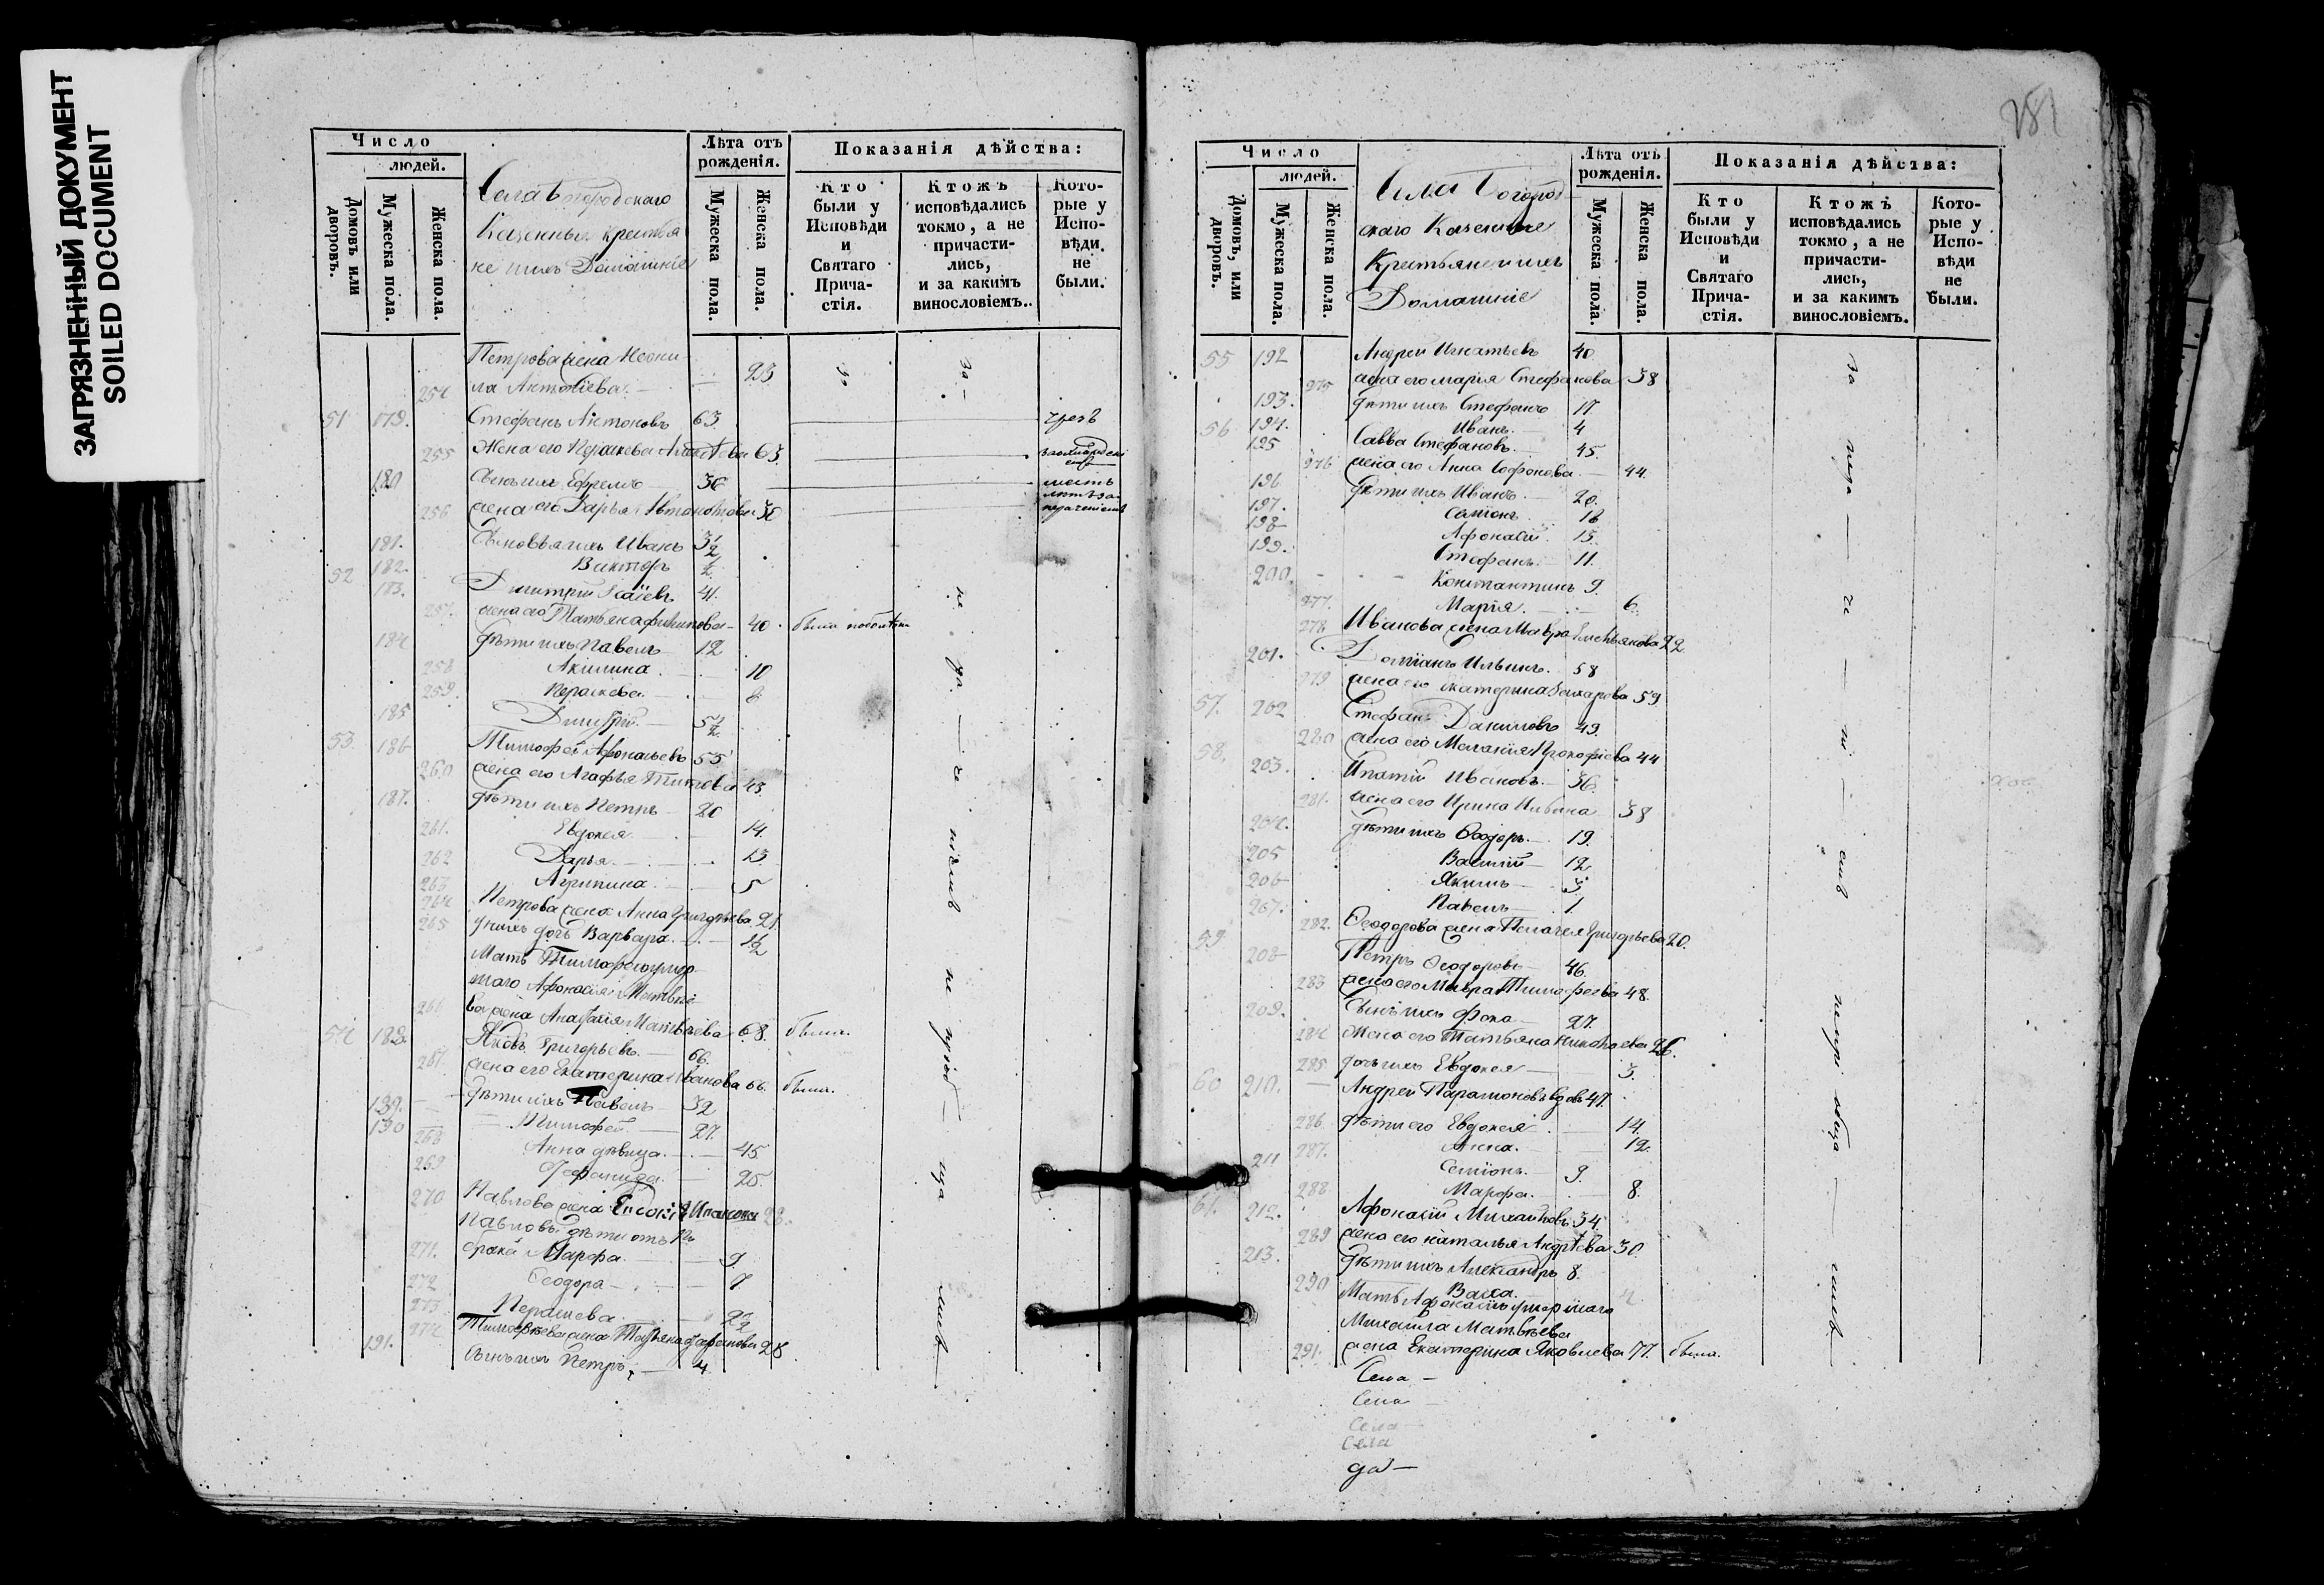 ЗАГРЯЗНЕННЫЙ ДОКУМЕНТ
SOILED DOCUMENT
Число
людей.
Домовъ или дворовъ.
Мужеска пола.
Женска пола.
Села Богородскаго
Казенныя крестья
не ихъ Домашніе
Лѣта отъ рожденія.
Мужеска пола.
Женска пола.
Показанія дѣйства:
Кто были у Исповѣди и Святаго Причастія.
Ктожъ исповѣдались токмо, а не причастились, и за какимъ винословіемъ.
Которые у Исповѣди не были.
Петрова жена Неони-
254 ла Антоніева 23
51 179. Стефанъ Антоновъ 63
255 Жена его Параскева 63.
180 Сынъ ихъ Ефремъ 36
256 жена его Дарья 36
181. Сыновья ихъ Иванъ 3½
182. Викторъ ½
52 183. Димитрій Исаіевъ 41.
257. жена его Татьяна Филипова 40
184 Дѣти ихъ Павелъ 12
258 Акилина 10
259. Параскева 8
185 Димитрій 5½
53. 186 Тимофей Афонасьевъ 55
260 жена его Агафья Титова 43.
187. Дѣти ихъ Петръ 20
261. Евдокея 14.
262 Дарья 13.
263 Агрипина 5
264 Петрова жена Анна Григорьева 21.
265 у нихъ дочь Варвара 1½
Мать Тимофеева умер-
шаго Афонасія Матвѣе
266 ва жена Анастасія Матвѣева 68. была.
54 188. Яковъ Григорьевъ 66.
267. жена его Екатерина Иванова 66. была.
189. Дѣти ихъ Павелъ 32
190 Тимофей 27.
268 Анна дѣвица 45
269 25.
270 Павлова жена
Павловы дѣти отъ 1го
271. брака Марфа 9.
272 Ѳеодора 7
273 Параскева 2½
274 Тимофеева жена Татьяна 28
191. Сынъ ихъ Петръ 4
281
Число
людей.
Домовъ, или дворовъ.
Мужеска пола.
Женска пола.
Села Богород-
скаго Казенные
Крестьяне и ихъ
Домашніе
Лѣта отъ рожденія.
Мужеска пола.
Женска пола.
Показанія дѣйства:
Кто были у Исповѣди и Святаго Причастія.
Ктожъ исповѣдались токмо, а не причастились, и за какимъ винословіемъ.
Которые у Исповѣди не были.
55 192 Андрей Игнатьевъ 40.
275 жена его Марія Стефанова 38
193. Дѣти ихъ Стефанъ 17
194. Иванъ 4
56 195 Савва Стефановъ 45.
276 жена его Анна Софонова 44.
196 Дѣти ихъ Иванъ 20.
197. Семіонъ 16
198 Афонасій 15.
199. Стефанъ 11.
200. Констант­инъ 9.
277. Марія. 6.
278 Иванова жена Мавра Емельянова 22
201. Доміанъ Ильинъ. 58
279 жена его Екатерина Захарова 59
57. 202 Стефанъ Даниловъ 49.
280 жена его Меланія Прокофіева 44
58. 203. Ипатій Ивановъ 36.
281. жена его Ирина Ильина 38
204. Дѣти ихъ Ѳеодоръ 19.
205 Василій 12
206 Якимъ 3
207. Павелъ 1.
282. Ѳеодорова жена Пелагея Григорьева 20.
59 208 Петръ Ѳеодоровъ 46.
283 жена его Мавра Тимофеева 48.
209. Сынъ ихъ Фока 27.
284 Жена его Татьяна Николаева 26.
285 дочь ихъ Евдокея 3.
60 210. Андрей Парамоновъ вдовъ 47.
286 Дѣти его Евдокея 14.
287. Анна. 12.
211 Семіонъ. 9.
288 Марфа. 8.
61. 212. Афонасій Михайловъ 34.
289 жена его Наталья Андрѣева 30
213. Дѣти ихъ Александръ 8.
290 Васса.
Мать Афонасія умершаго
Михаила Матвѣева
291. жена Екатерина Яковлева 77. была.
Села
Села
Села
Села
да